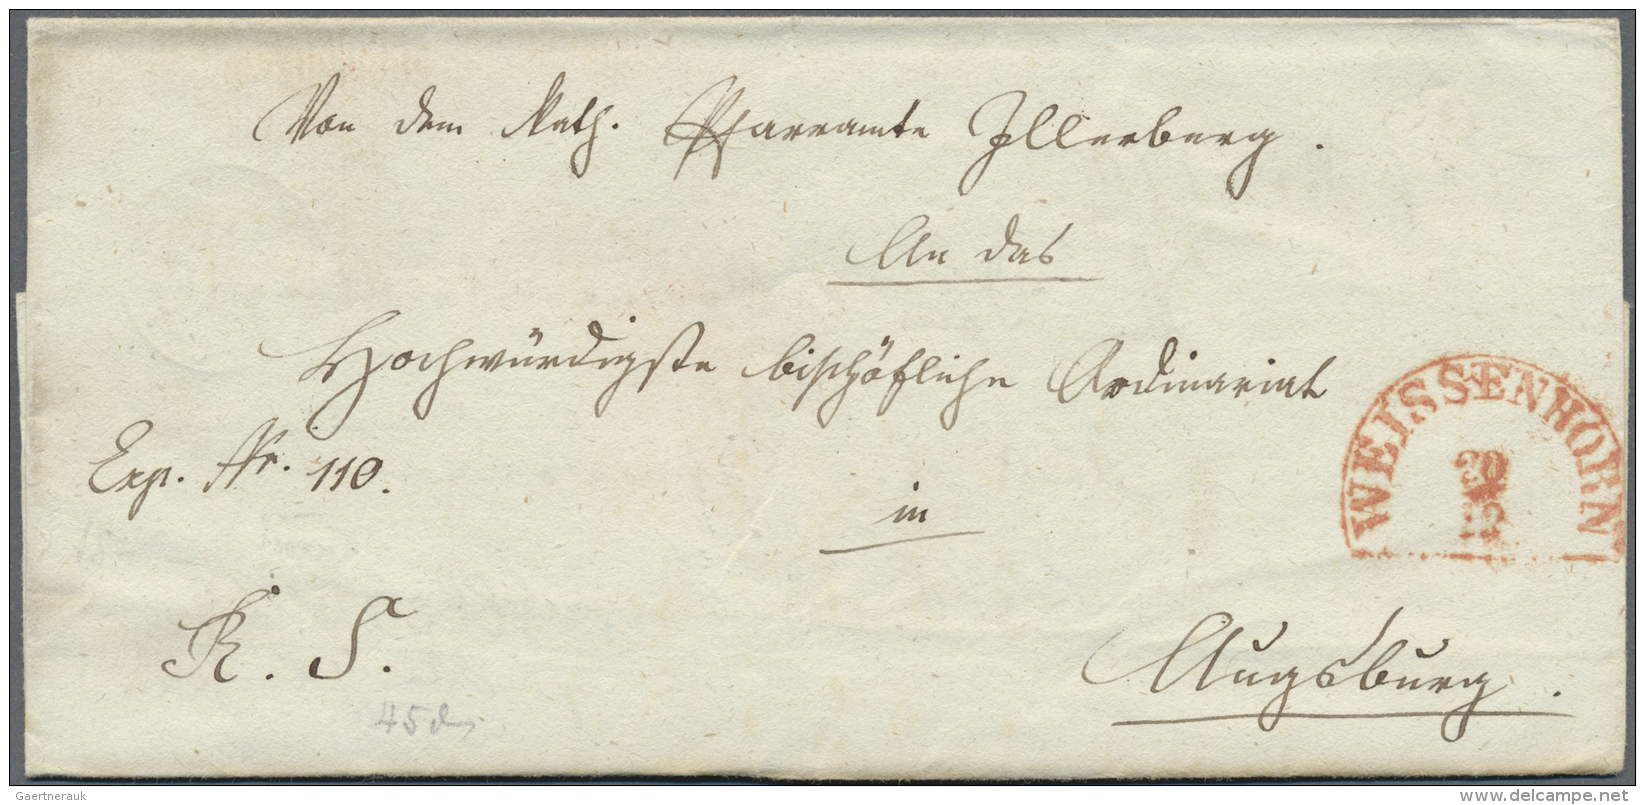 Von dem Kath. Pfarramte Illerberg.
An das
Hochwürdigste bischöfliche Ordinariat
WEISSENHORN
20
12
Exp. Nr. 110.
in
R. S.
Augsburg.
Gaertnerauk
www.delcampe.net